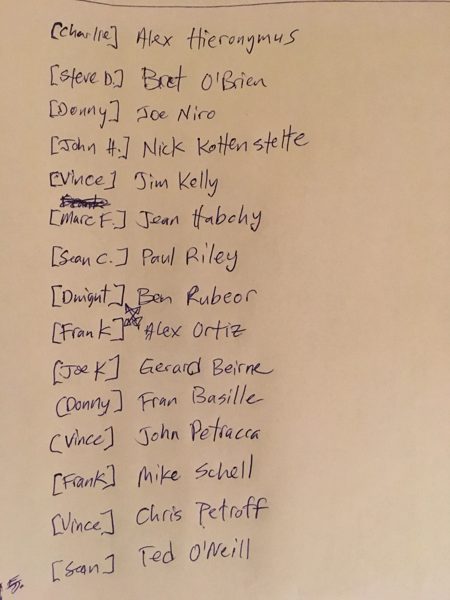 [Charlie] Alex Hieronymus
[Steve D.] Bret O'Brien
[Donny] Joe Niro
[John H.] Nick Kottenstette
[Vince] Jim Kelly
[Marc F.] Jean Habchy
[Sean C.] Paul Riley
[Dwight] Ben Rubeor
[Frank] Alex Ortiz
[Joe K] Gerard Beirne
(Donny] Fran Basille
(Vince] John Petracca
[Frank] Mike Schell
[Vince] Chris Petroff
[Sean] Ted O'Neill